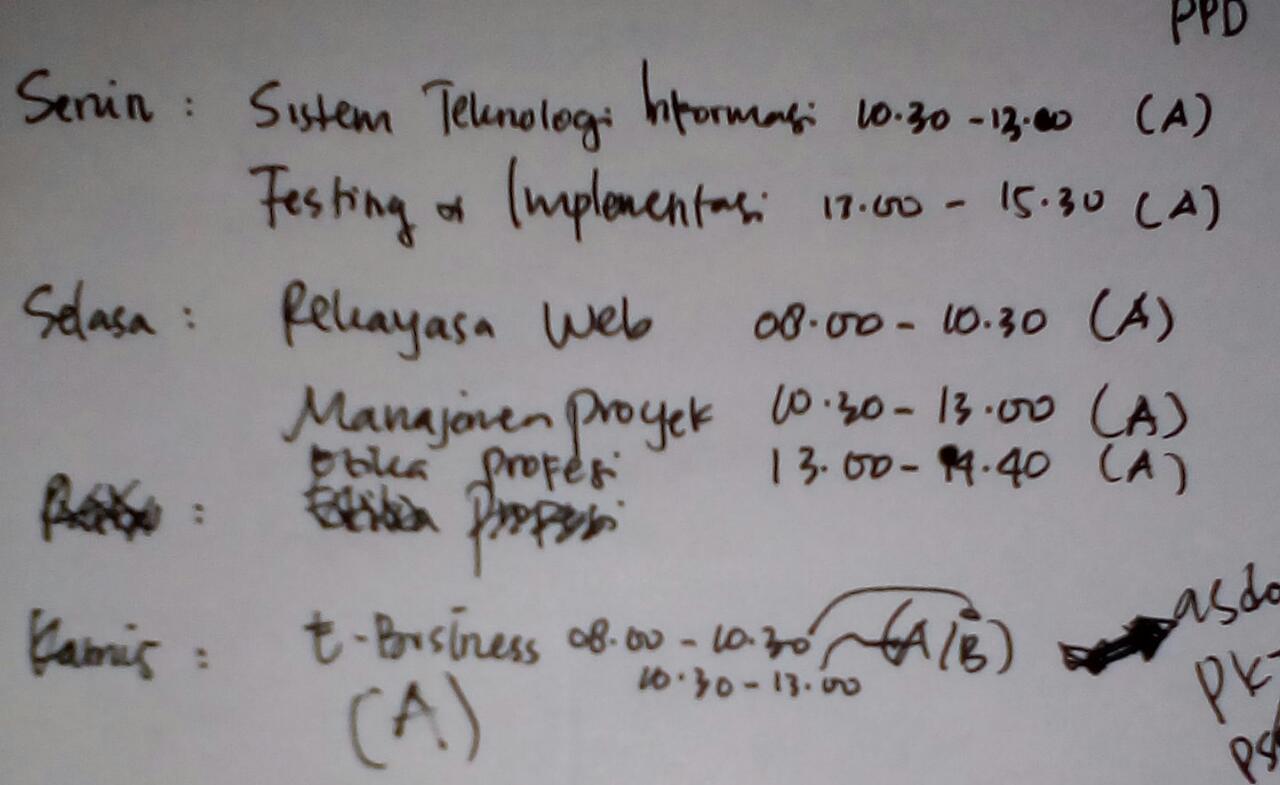 PPD
Senin : Sistem Teknologi Informasi 10.30 - 13.00 (A)
Testing & Implementasi 13.00 - 15.30 (A)
Selasa : Rekayasa Web 08.00 - 10.30 (A)
Manajemen Proyek 10.30 - 13.00 (A)
Etika Profesi 13.00 - 14.40 (A)
: Etika Profesi
Kamis : E-Business 08.00 - 10.30 (A/B)
10.30 - 13.00
(A)
asdo
PK
PS